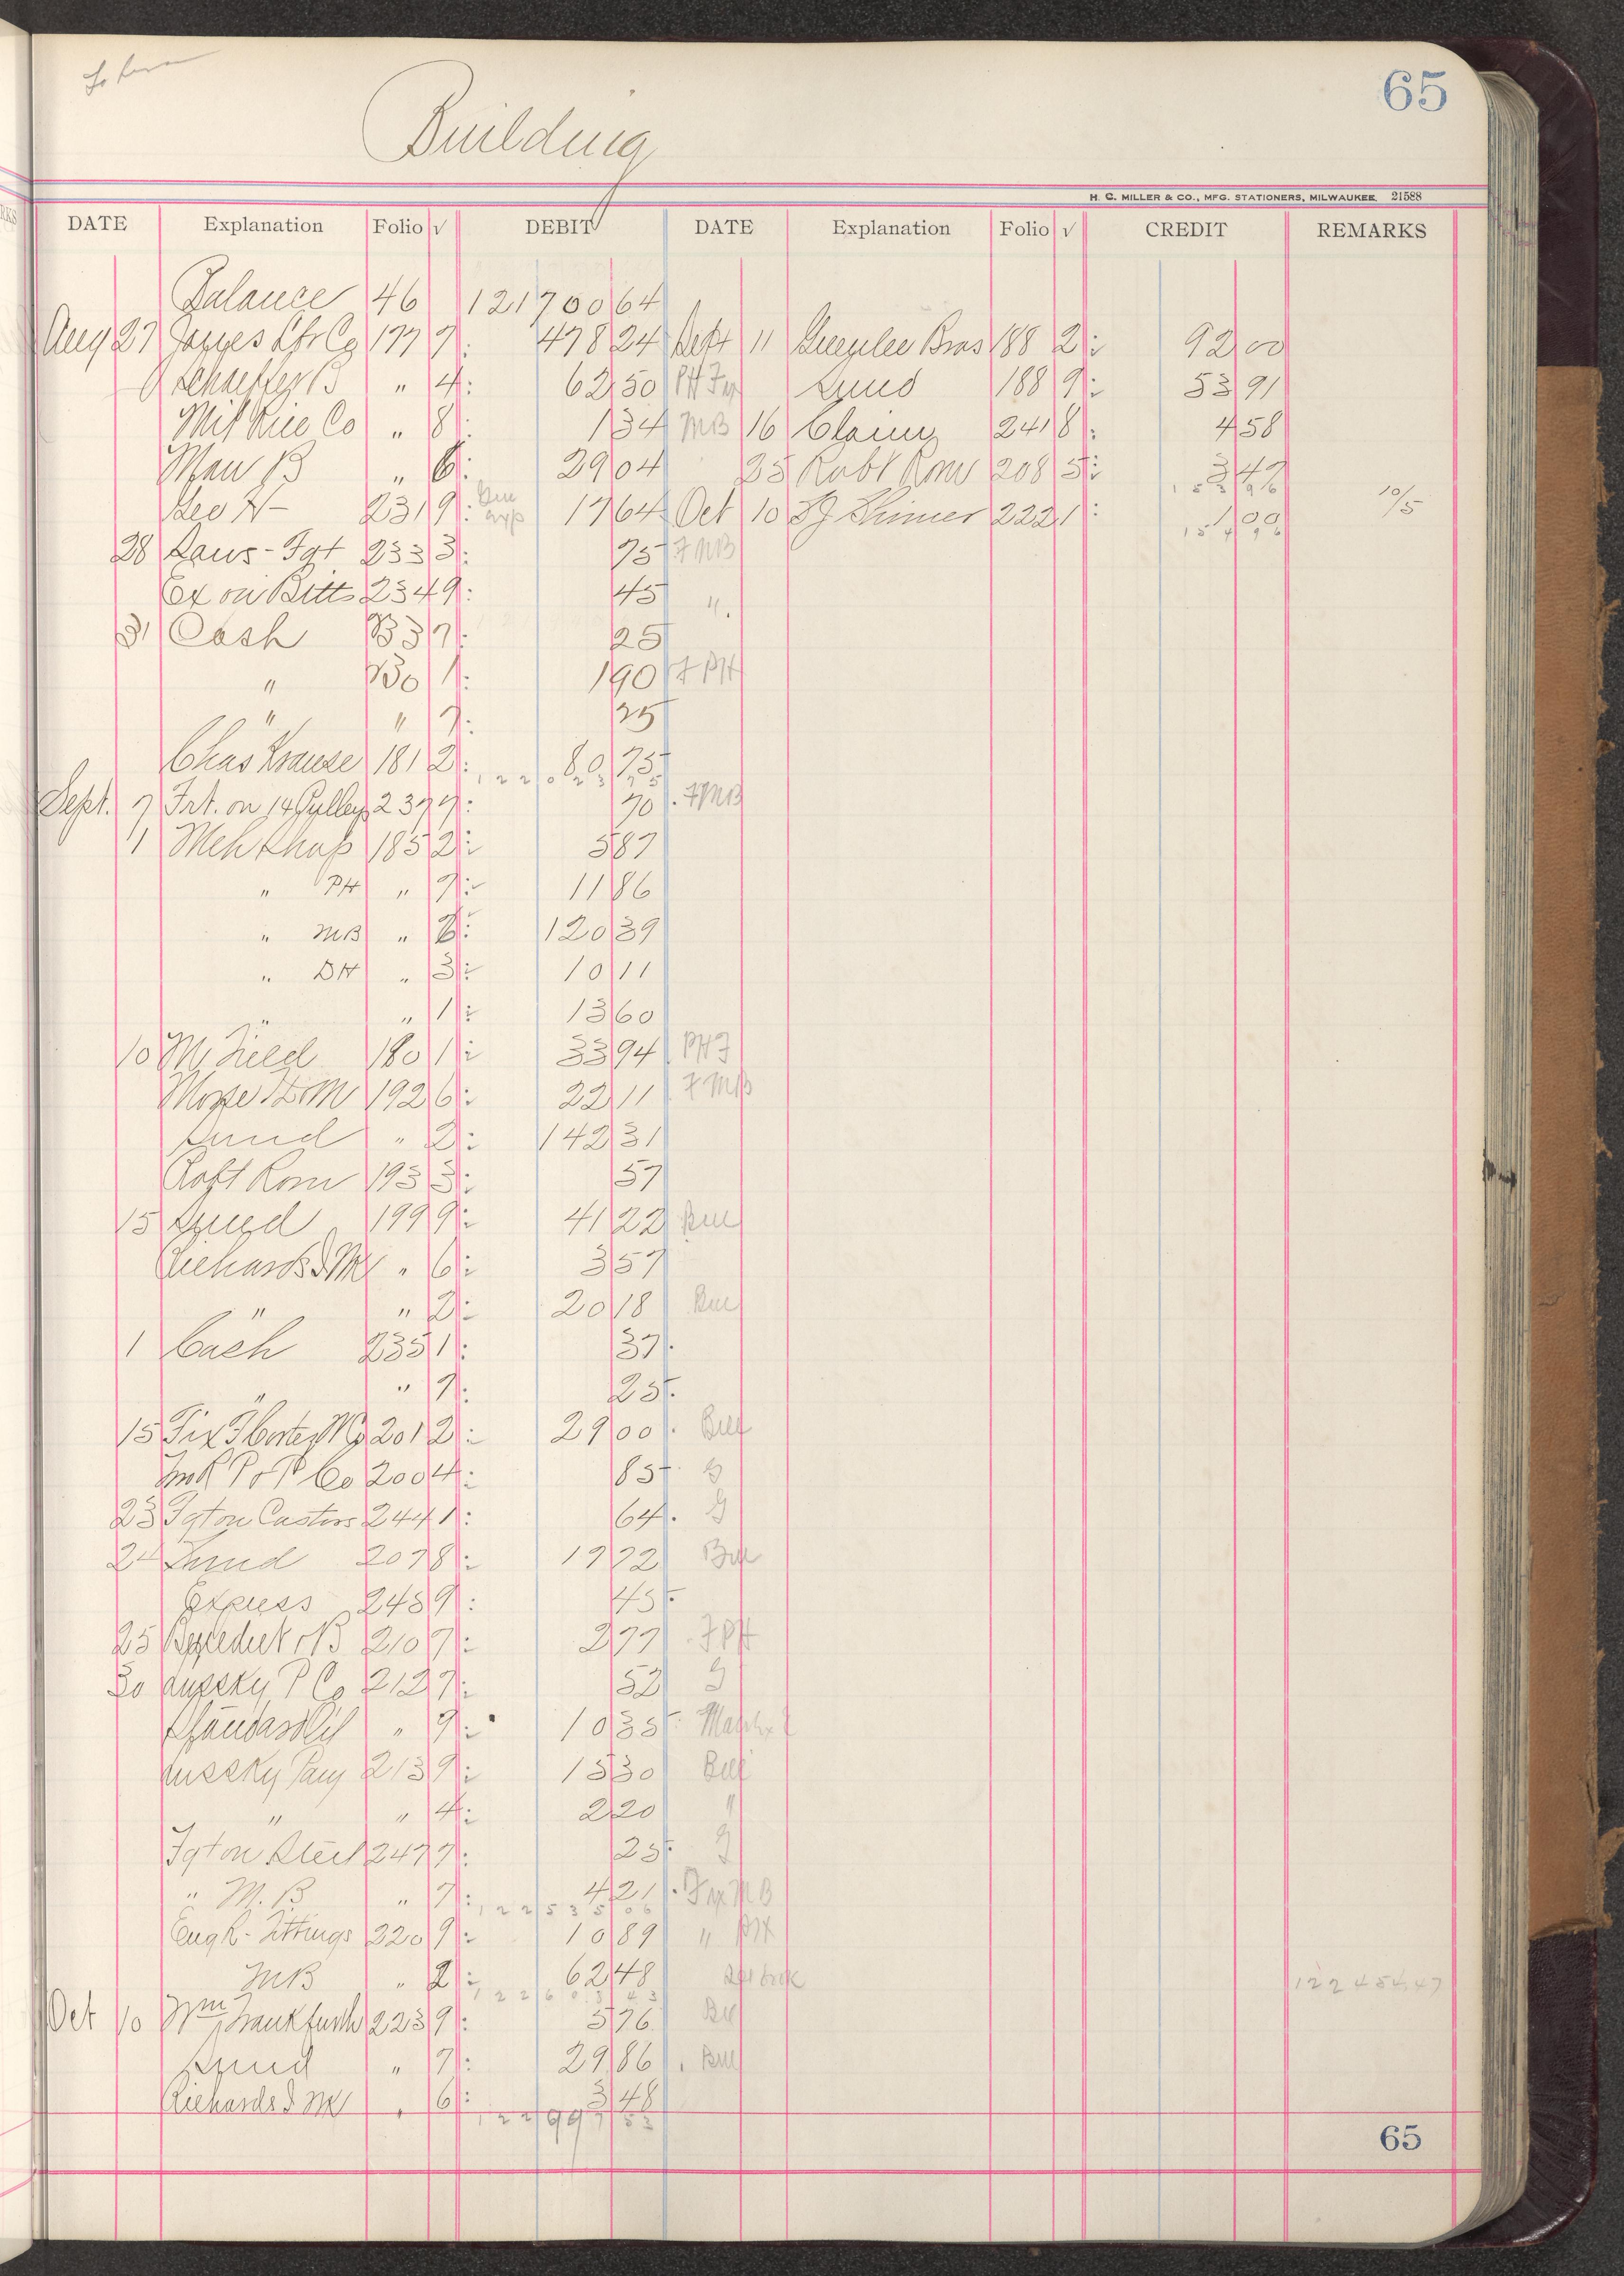 65
Building
H. C. MILLER & CO., MFG. STATIONERS, MILWAUKEE. 21588
DATE Explanation Folio √ DEBIT DATE Explanation Folio √ CREDIT REMARKS
Balance 46 121700 64
Aug 27 177 7 478 24 Sept 11 Greenlee Bros 188 2 92 00
Schaeffer B " 4 62 50 PH Fix Sund 188 9 53 91
Mil Rice Co " 8 1 34 MB 16 Claim 241 8 4 58
Man B " 6 29 04 25 Robt Rom 208 5 3 47
153 96
Geo N 231 9 17 64 Oct 10 222 1 1 00 10/5
154 96
28 Laws - Fgt 233 3 75 F MB
Ex on Bitts 234 9 45 "
31 Cash 37 25
" 1 1 90 F PH
" " 7 25
Chas Krause 181 2 80 75
122 023 25
Sept. 7 Frt. on 14 Pulleys 237 7 70 F MB
1 Meh Shop 185 2 5 87
" PH " 7 11 86
" MB " 8 120 39
" DH " 3 10 11
" " 1 13 60
10 M. Field 180 1 33 94 PH F
Morse & M 192 6 22 11 F MB
Sund " 2 142 31
Robt Rom 193 3 57
15 Sund 199 9 41 22 Bill
Richards & M " 6 3 57
" " 2 20 18 Bill
1 Cash 235 1 37
" " 7 25
15 201 2 29 00 Bill
P & P Co 200 4 85 G
23 Fgt on Castors 244 1 64 G
24 Sund 207 8 19 72 Bill
Express 245 9 45
25 Benedict & B 210 7 2 77 F PH
30 Lussky P Co 212 7 52 G
Standard Oil " 9 10 35
Lussky Pay 213 9 15 30 Bill
" " 4 2 20 "
Fgt on Steel 247 7 25 G
" M.B " 7 4 21 Fix MB
122 535 06
Eng R. Fittings 220 9 10 89 " PH
MB " 2 62 48 122 454.47
122 603 43
Oct 10 Wm Frankfurth 223 9 5 76 Bill
Sund " 7 29 86 Bill
Richards & M " 6 3 48
122 997 53
65